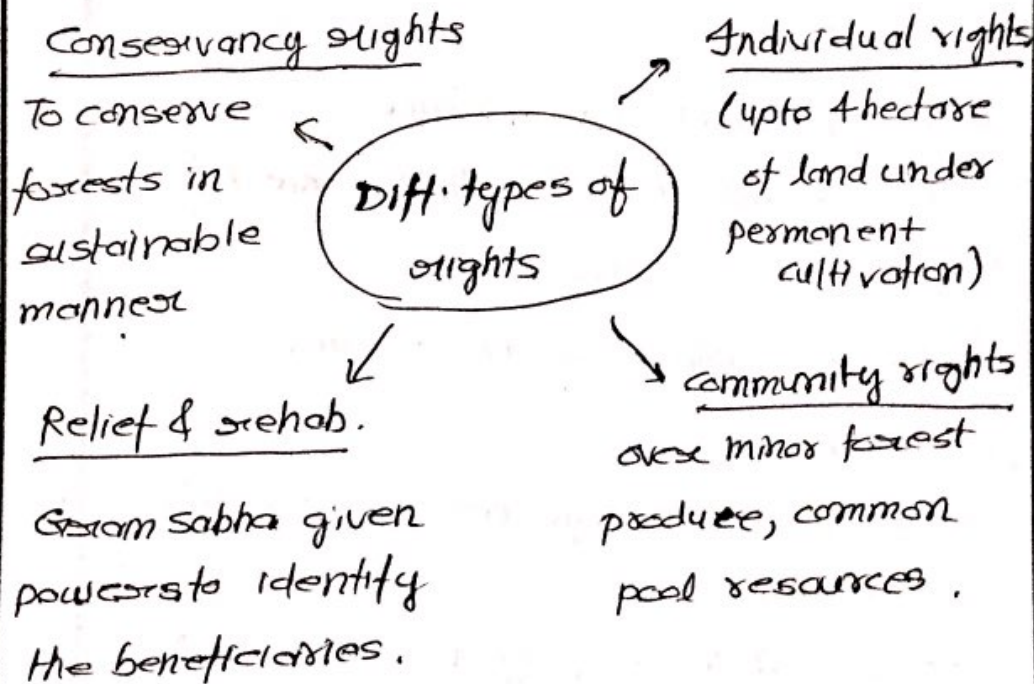 Conservancy rights
To conserve
forests in
sustainable
manner
Diff. types of
rights
Individual rights
(upto 4hectare
of land under
permanent
cultivation)
Relief & rehab.
Gram sabha given
powers to identify
the beneficiaries.
Community rights
over minor forest
produce, common
pool resources.